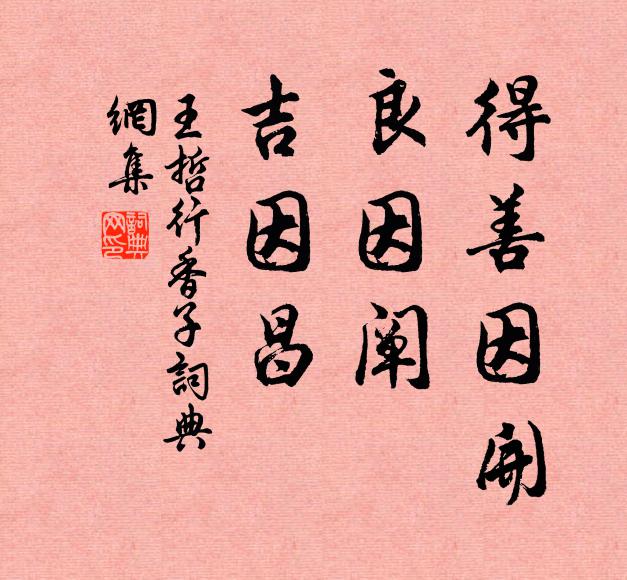 得善因开
良因阐
吉因昌
王哲行香子詞典
網集
詞典网印